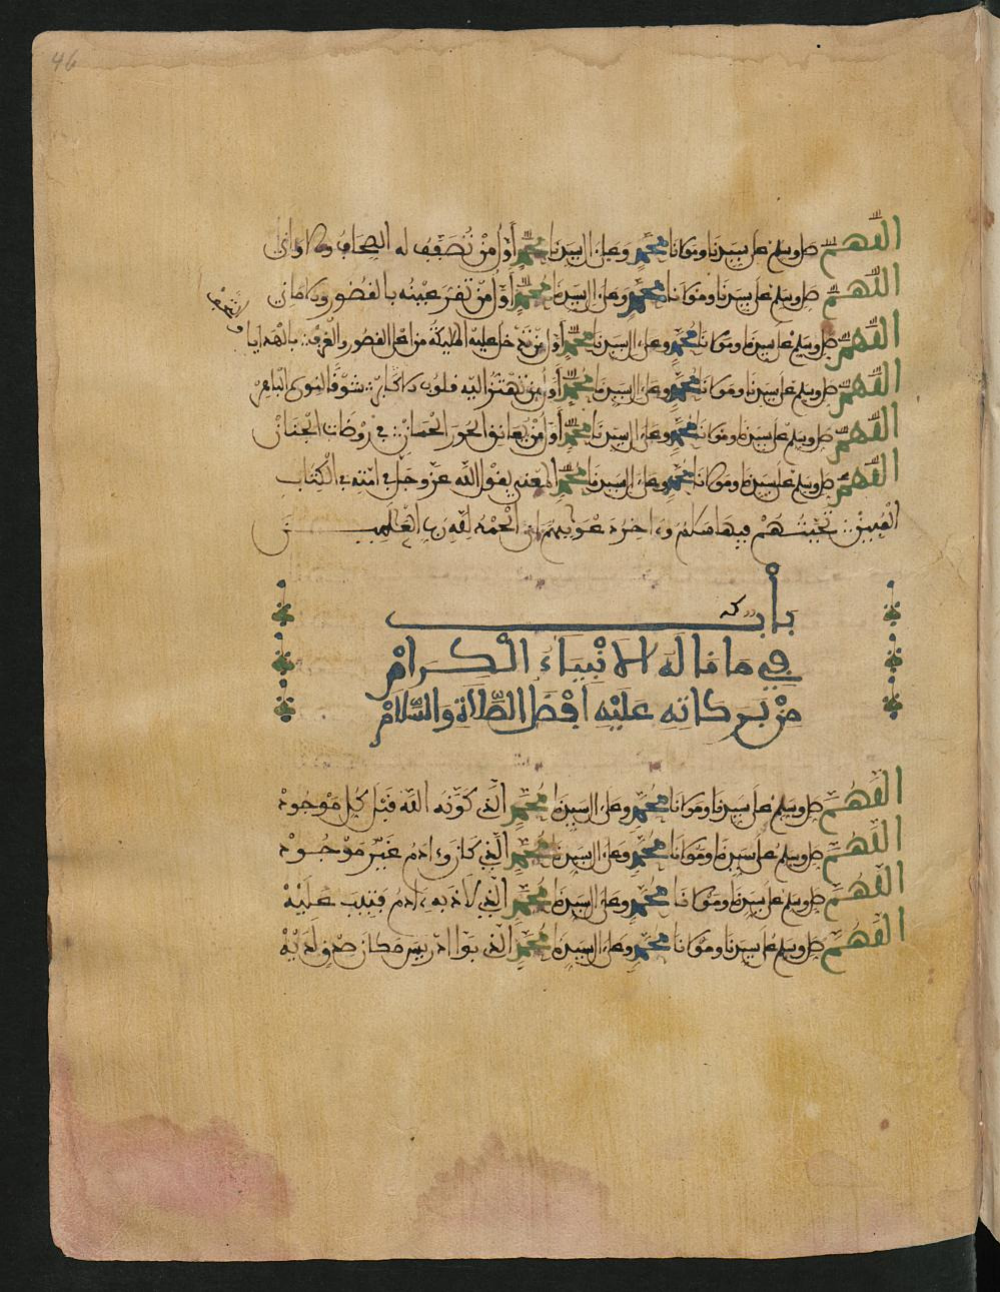 46
اللهم صل وسلم على سيدنا ومولانا محمد وعلى ال سيدنا محمد أول من تصفف له الصحاف والاواني
اللهم صل وسلم على سيدنا ومولانا محمد وعلى ال سيدنا محمد أول من تقر عينه بالقصور والاماني
اللهم صل وسلم على سيدنا ومولانا محمد وعلى ال سيدنا محمد أول من تدخل عليه الملايكة من اعلى القصور والغرف بالهدايا
والتحف
اللهم صل وسلم على سيدنا ومولانا محمد وعلى ال سيدنا محمد أول من تهتز اليه قلوب الاكابر شوقا لنوره الباهر
اللهم صل وسلم على سيدنا ومولانا محمد وعلى ال سيدنا محمد أول من يعانق الحور الحسان في روضات الجنان
اللهم صل وسلم على سيدنا ومولانا محمد وعلى ال سيدنا محمد المعني بقول الله عز وجل في امته في الكتاب
المبين تحيتهم فيها سلم وءاخر دعويهم ان الحمد لله رب العلمين
باب
في ما قاله الانبياء الكرام
من بركاته عليه افضل الصلاة والسلام
اللهم صل وسلم على سيدنا ومولانا محمد وعلى ال سيدنا محمد الذي كونه الله قبل كل موجود
اللهم صل وسلم على سيدنا ومولانا محمد وعلى ال سيدنا محمد الذي كان وءادم غير موجود
اللهم صل وسلم على سيدنا ومولانا محمد وعلى ال سيدنا محمد الذي لاذ به ءادم فتيب عليه
اللهم صل وسلم على سيدنا ومولانا محمد وعلى ال سيدنا محمد الذي بوا ادريس مكان صدق لديه